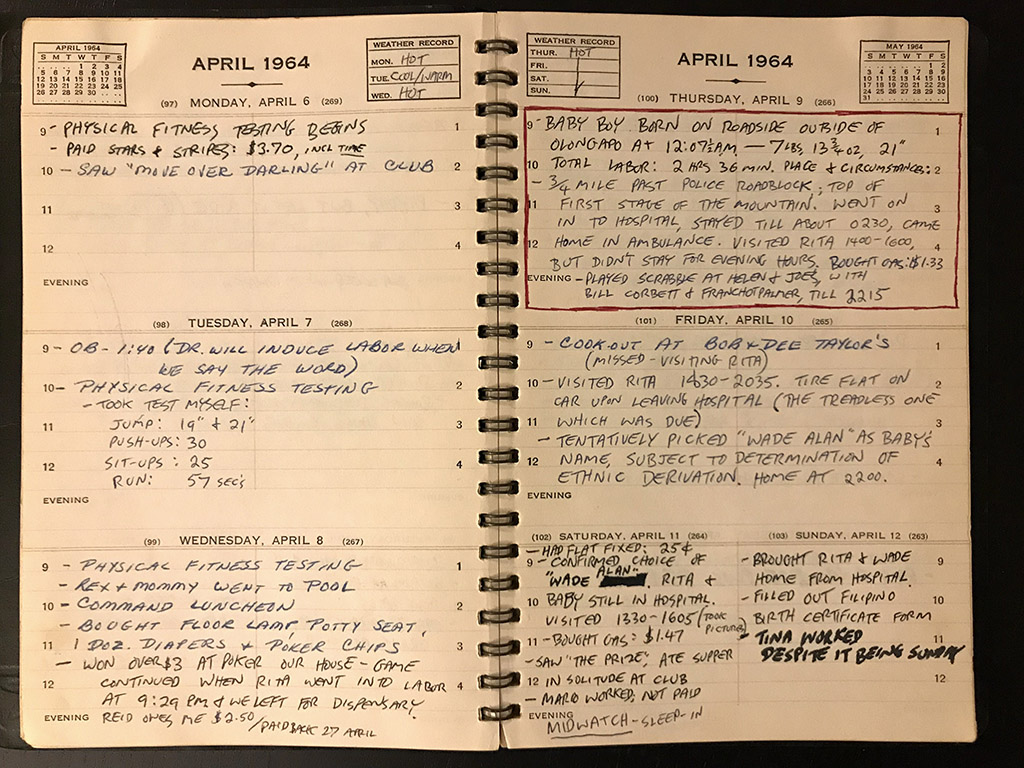 APRIL 1964
S M T W T F S
1 2 3 4
5 6 7 8 9 10 11
12 13 14 15 16 17 18
19 20 21 22 23 24 25
26 27 28 29 30
APRIL 1964
WEATHER RECORD
MON. HOT
TUE. COOL/WARM
WED. HOT
(97) MONDAY, APRIL 6 (269)
9 - PHYSICAL FITNESS TESTING BEGINS 1
- PAID STARS & STRIPES: $3.70, INCL TIME
10 - SAW "MOVE OVER DARLING" AT CLUB 2
11 3
12 4
EVENING
(98) TUESDAY, APRIL 7 (268)
9 - OB - 1:40 (DR. WILL INDUCE LABOR WHEN 1
WE SAY THE WORD)
10 - PHYSICAL FITNESS TESTING 2
- TOOK TEST MYSELF:
11 JUMP: 19" & 21" 3
PUSH-UPS: 30
12 SIT-UPS: 25 4
RUN: 57 SEC'S
EVENING
(99) WEDNESDAY, APRIL 8 (267)
9 - PHYSICAL FITNESS TESTING 1
- REX & MOMMY WENT TO POOL
10 - COMMAND LUNCHEON 2
- BOUGHT FLOOR LAMP, POTTY SEAT,
11 1 DOZ. DIAPERS & POKER CHIPS 3
- WON OVER $3 AT POKER OUR HOUSE - GAME
12 CONTINUED WHEN RITA WENT INTO LABOR 4
AT 9:29 PM & WE LEFT FOR DISPENSARY.
EVENING REID OWES ME $2.50 / PAID BACK 27 APRIL
WEATHER RECORD
THUR. HOT
FRI.
SAT.
SUN.
APRIL 1964
MAY 1964
S M T W T F S
1 2
3 4 5 6 7 8 9
10 11 12 13 14 15 16
17 18 19 20 21 22 23
24 25 26 27 28 29 30
31
(100) THURSDAY, APRIL 9 (266)
9 - BABY BOY BORN ON ROADSIDE OUTSIDE OF 1
OLONGAPO AT 12:07½ AM. — 7 LBS 13 ¾ OZ, 21"
10 TOTAL LABOR: 2 HRS 36 MIN. PLACE & CIRCUMSTANCES: 2
- ¾ MILE PAST POLICE ROADBLOCK; TOP OF
11 FIRST STAGE OF THE MOUNTAIN. WENT ON 3
IN TO HOSPITAL, STAYED TILL ABOUT 0230, CAME
12 HOME IN AMBULANCE. VISITED RITA 1400-1600, 4
BUT DIDN'T STAY FOR EVENING HOURS. BOUGHT GAS: $1.33
EVENING - PLAYED SCRABBLE AT HELEN & JOE'S, WITH
BILL CORBETT & FRANCHOT PALMER, TILL 2215
(101) FRIDAY, APRIL 10 (265)
9 - COOK-OUT AT BOB & DEE TAYLOR'S 1
(MISSED - VISITING RITA)
10 - VISITED RITA 1830-2035. TIRE FLAT ON 2
CAR UPON LEAVING HOSPITAL (THE TREADLESS ONE
11 WHICH WAS DUE) 3
- TENTATIVELY PICKED "WADE ALAN" AS BABY'S
12 NAME, SUBJECT TO DETERMINATION OF 4
ETHNIC DERIVATION. HOME AT 2200.
EVENING
(102) SATURDAY, APRIL 11 (264)
- HAD FLAT FIXED: 25¢
9 - CONFIRMED CHOICE OF
"WADE ALAN" RITA &
10 BABY STILL IN HOSPITAL.
VISITED 1330-1605 (TOOK PICTURES)
11 - BOUGHT GAS: $1.47
- SAW "THE PRIZE", ATE SUPPER
12 IN SOLITUDE AT CLUB
- MARIO WORKED, NOT PAID
EVENING
MIDWATCH - SLEEP-IN
(103) SUNDAY, APRIL 12 (263)
- BROUGHT RITA & WADE 9
HOME FROM HOSPITAL.
- FILLED OUT FILIPINO 10
BIRTH CERTIFICATE FORM
- TINA WORKED 11
DESPITE IT BEING SUNDAY
12